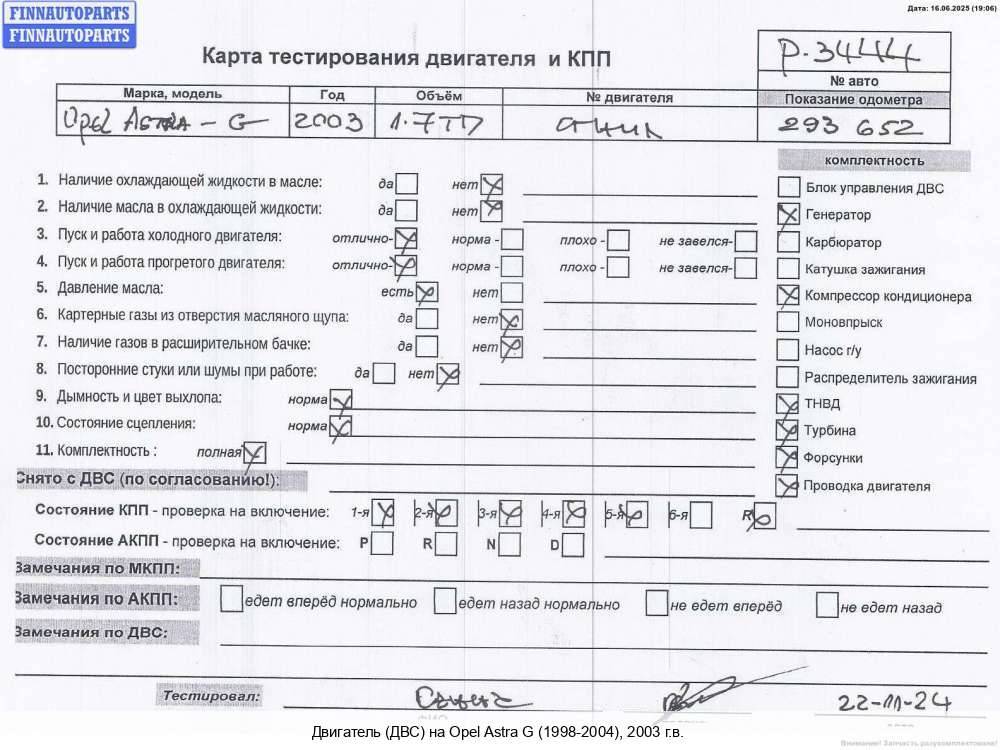 FINNAUTOPARTS
FINNAUTOPARTS
Дата: 16.06.2025 (19:06)
Карта тестирования двигателя и КПП
P-3444
№ авто
Марка, модель Год Объём № двигателя Показание одометра
Opel Astra - G 2003 1.7TD 293 652
комплектность
1. Наличие охлаждающей жидкости в масле: да нет
Блок управления ДВС
2. Наличие масла в охлаждающей жидкости: да нет
Генератор
3. Пуск и работа холодного двигателя: отлично- норма - плохо - не завелся-
Карбюратор
4. Пуск и работа прогретого двигателя: отлично- норма - плохо - не завелся-
Катушка зажигания
5. Давление масла: есть нет
Компрессор кондиционера
6. Картерные газы из отверстия масляного щупа: да нет
Моновпрыск
7. Наличие газов в расширительном бачке: да нет
Насос г/у
8. Посторонние стуки или шумы при работе: да нет
Распределитель зажигания
9. Дымность и цвет выхлопа: норма
ТНВД
10. Состояние сцепления: норма
Турбина
11. Комплектность : полная
Форсунки
Снято с ДВС (по согласованию!):
Проводка двигателя
Состояние КПП - проверка на включение: 1-я 2-я 3-я 4-я 5-я 6-я R
Состояние АКПП - проверка на включение: P R N D
Замечания по МКПП:
Замечания по АКПП: едет вперёд нормально едет назад нормально не едет вперёд не едет назад
Замечания по ДВС:
Тестировал: 22-11-24
Двигатель (ДВС) на Opel Astra G (1998-2004), 2003 г.в.
Внимание! Запчасть разукомплектована!